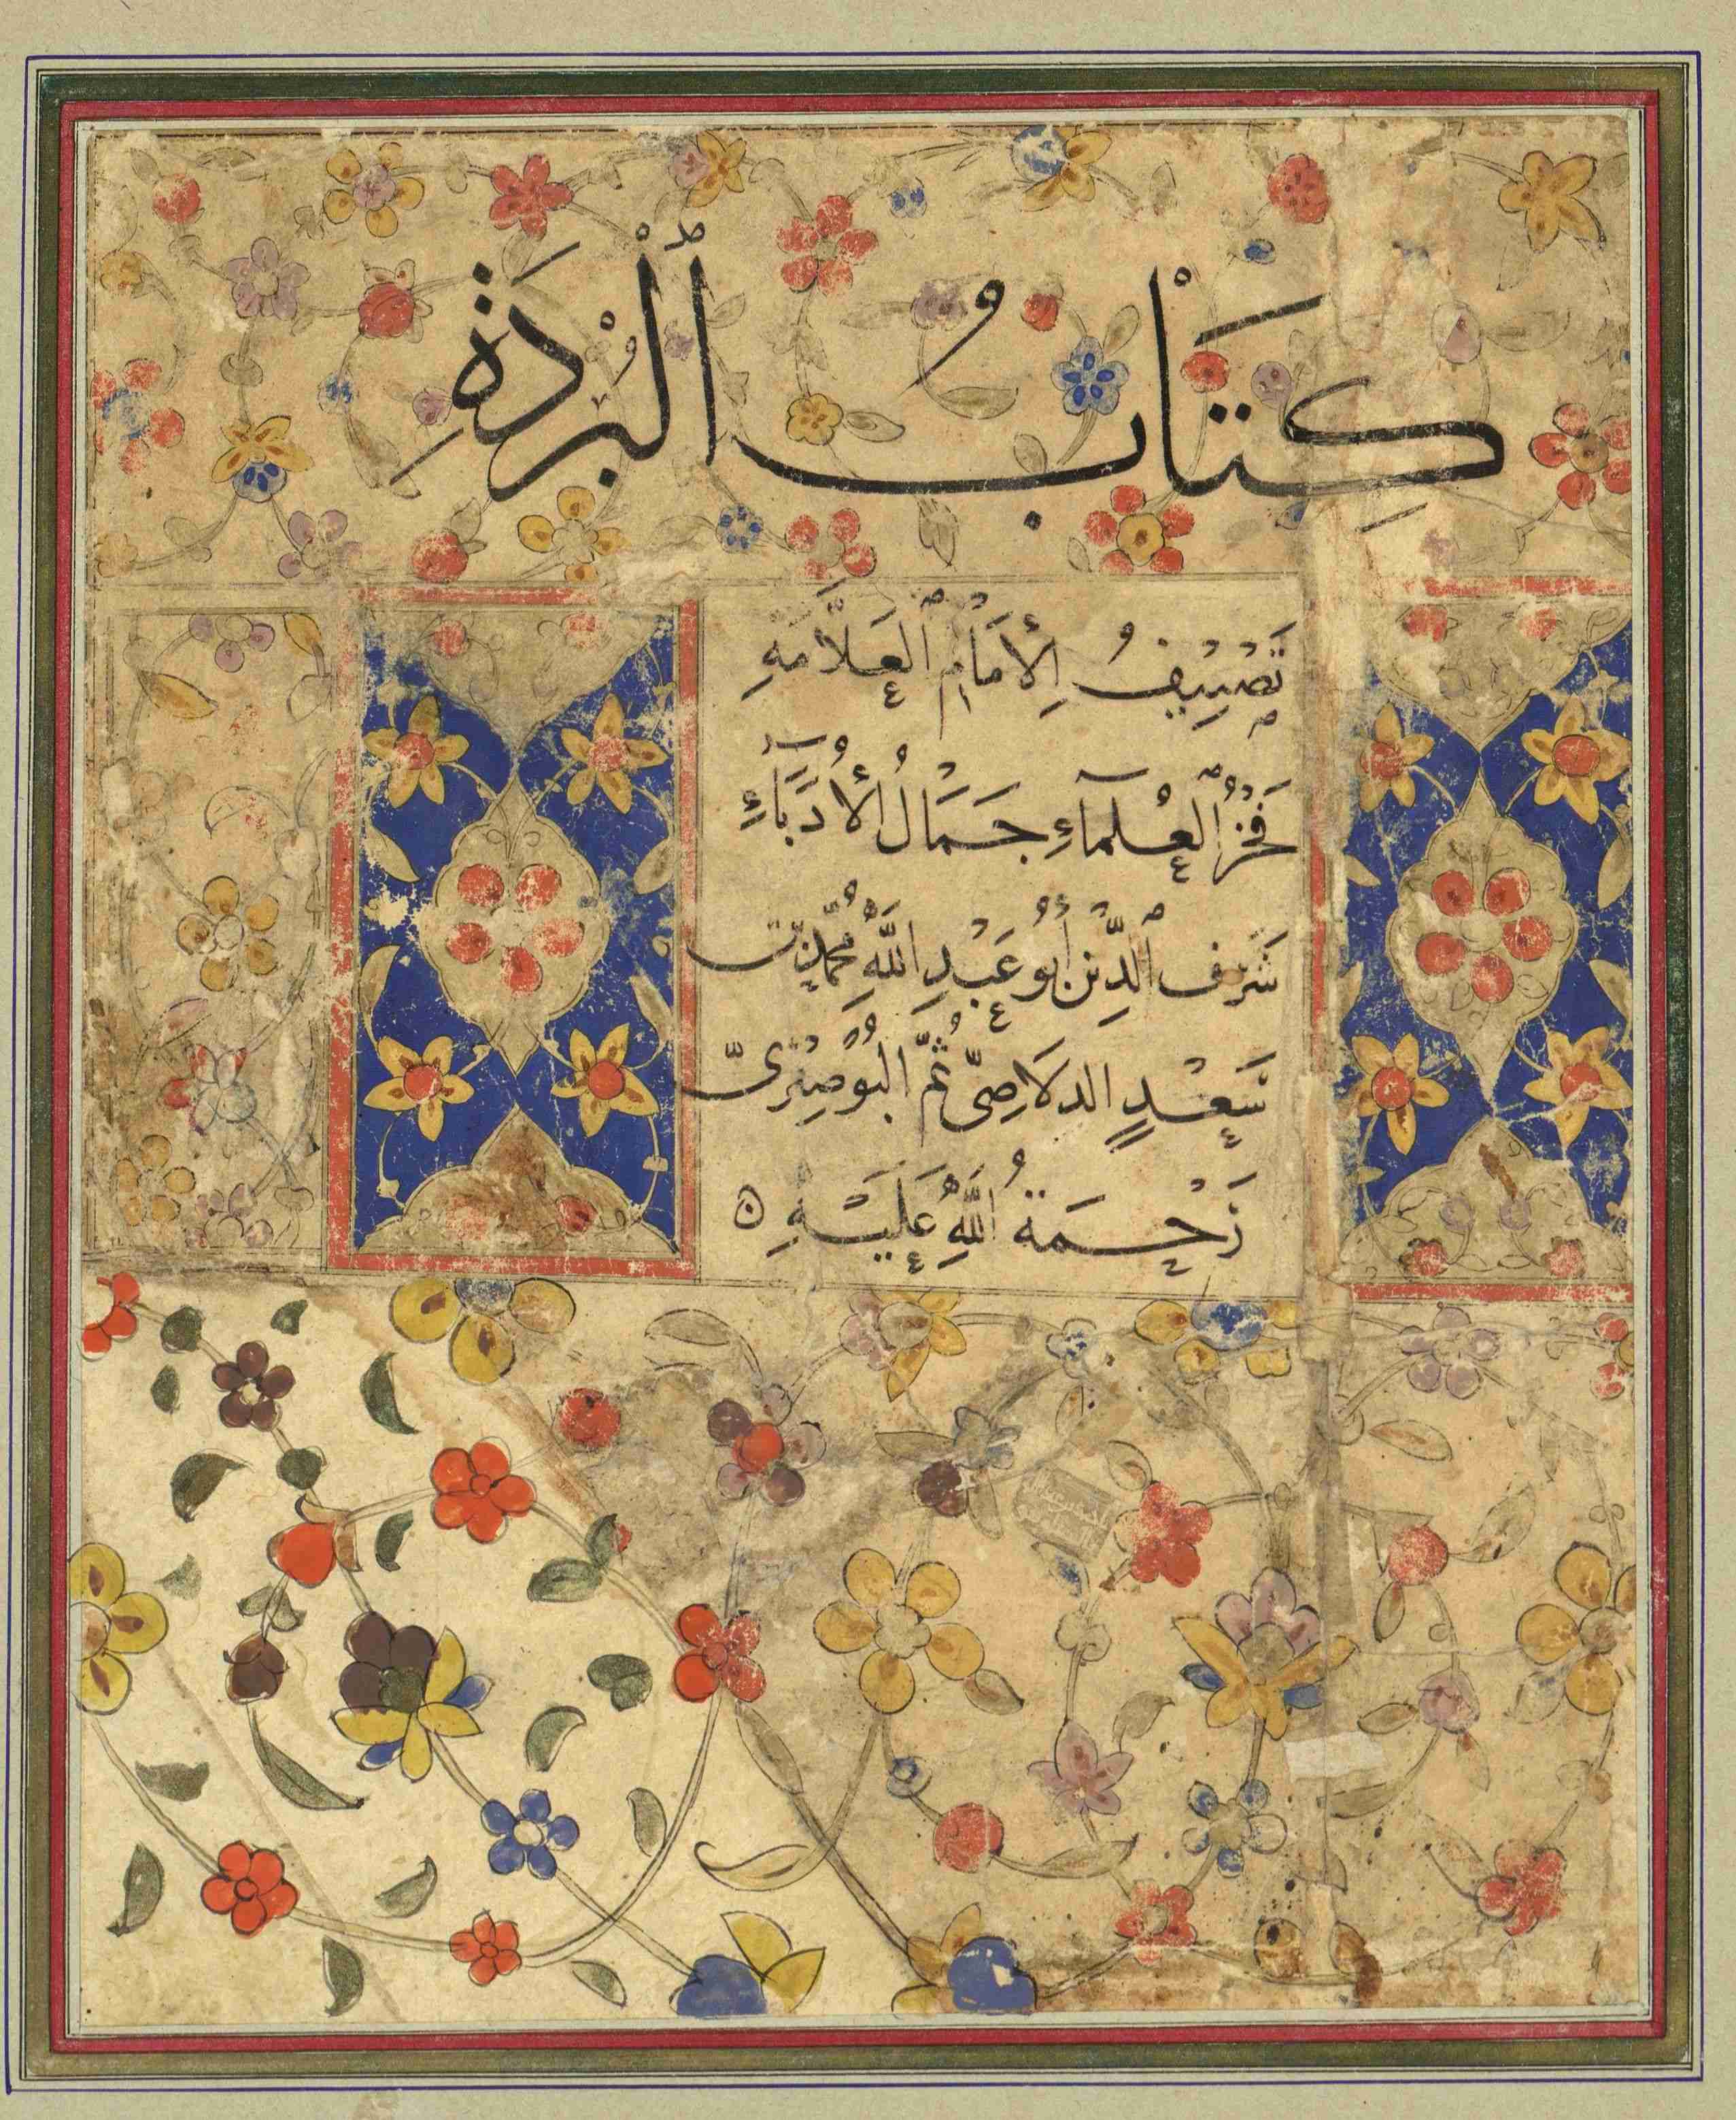 كِتَابُ ٱلْبُرْدَةِ
تَصْنِيفُ الْأِمَامِ ٱلْعَلَّامَهِ
فَخْرُ ٱلْعُلَمَاءِ جَمَالُ الْأُدَبَآءِ
شَرَف ٱلدِّين أَبُو عَبْدِ اللَّهِ مُحَمَّد بْن
سَعْدٍ الدلَاصِىّ ثُمَّ الْبُوصِيْرِىّ
رَحْمَةُ اللَّهِ عَلَيْهِ